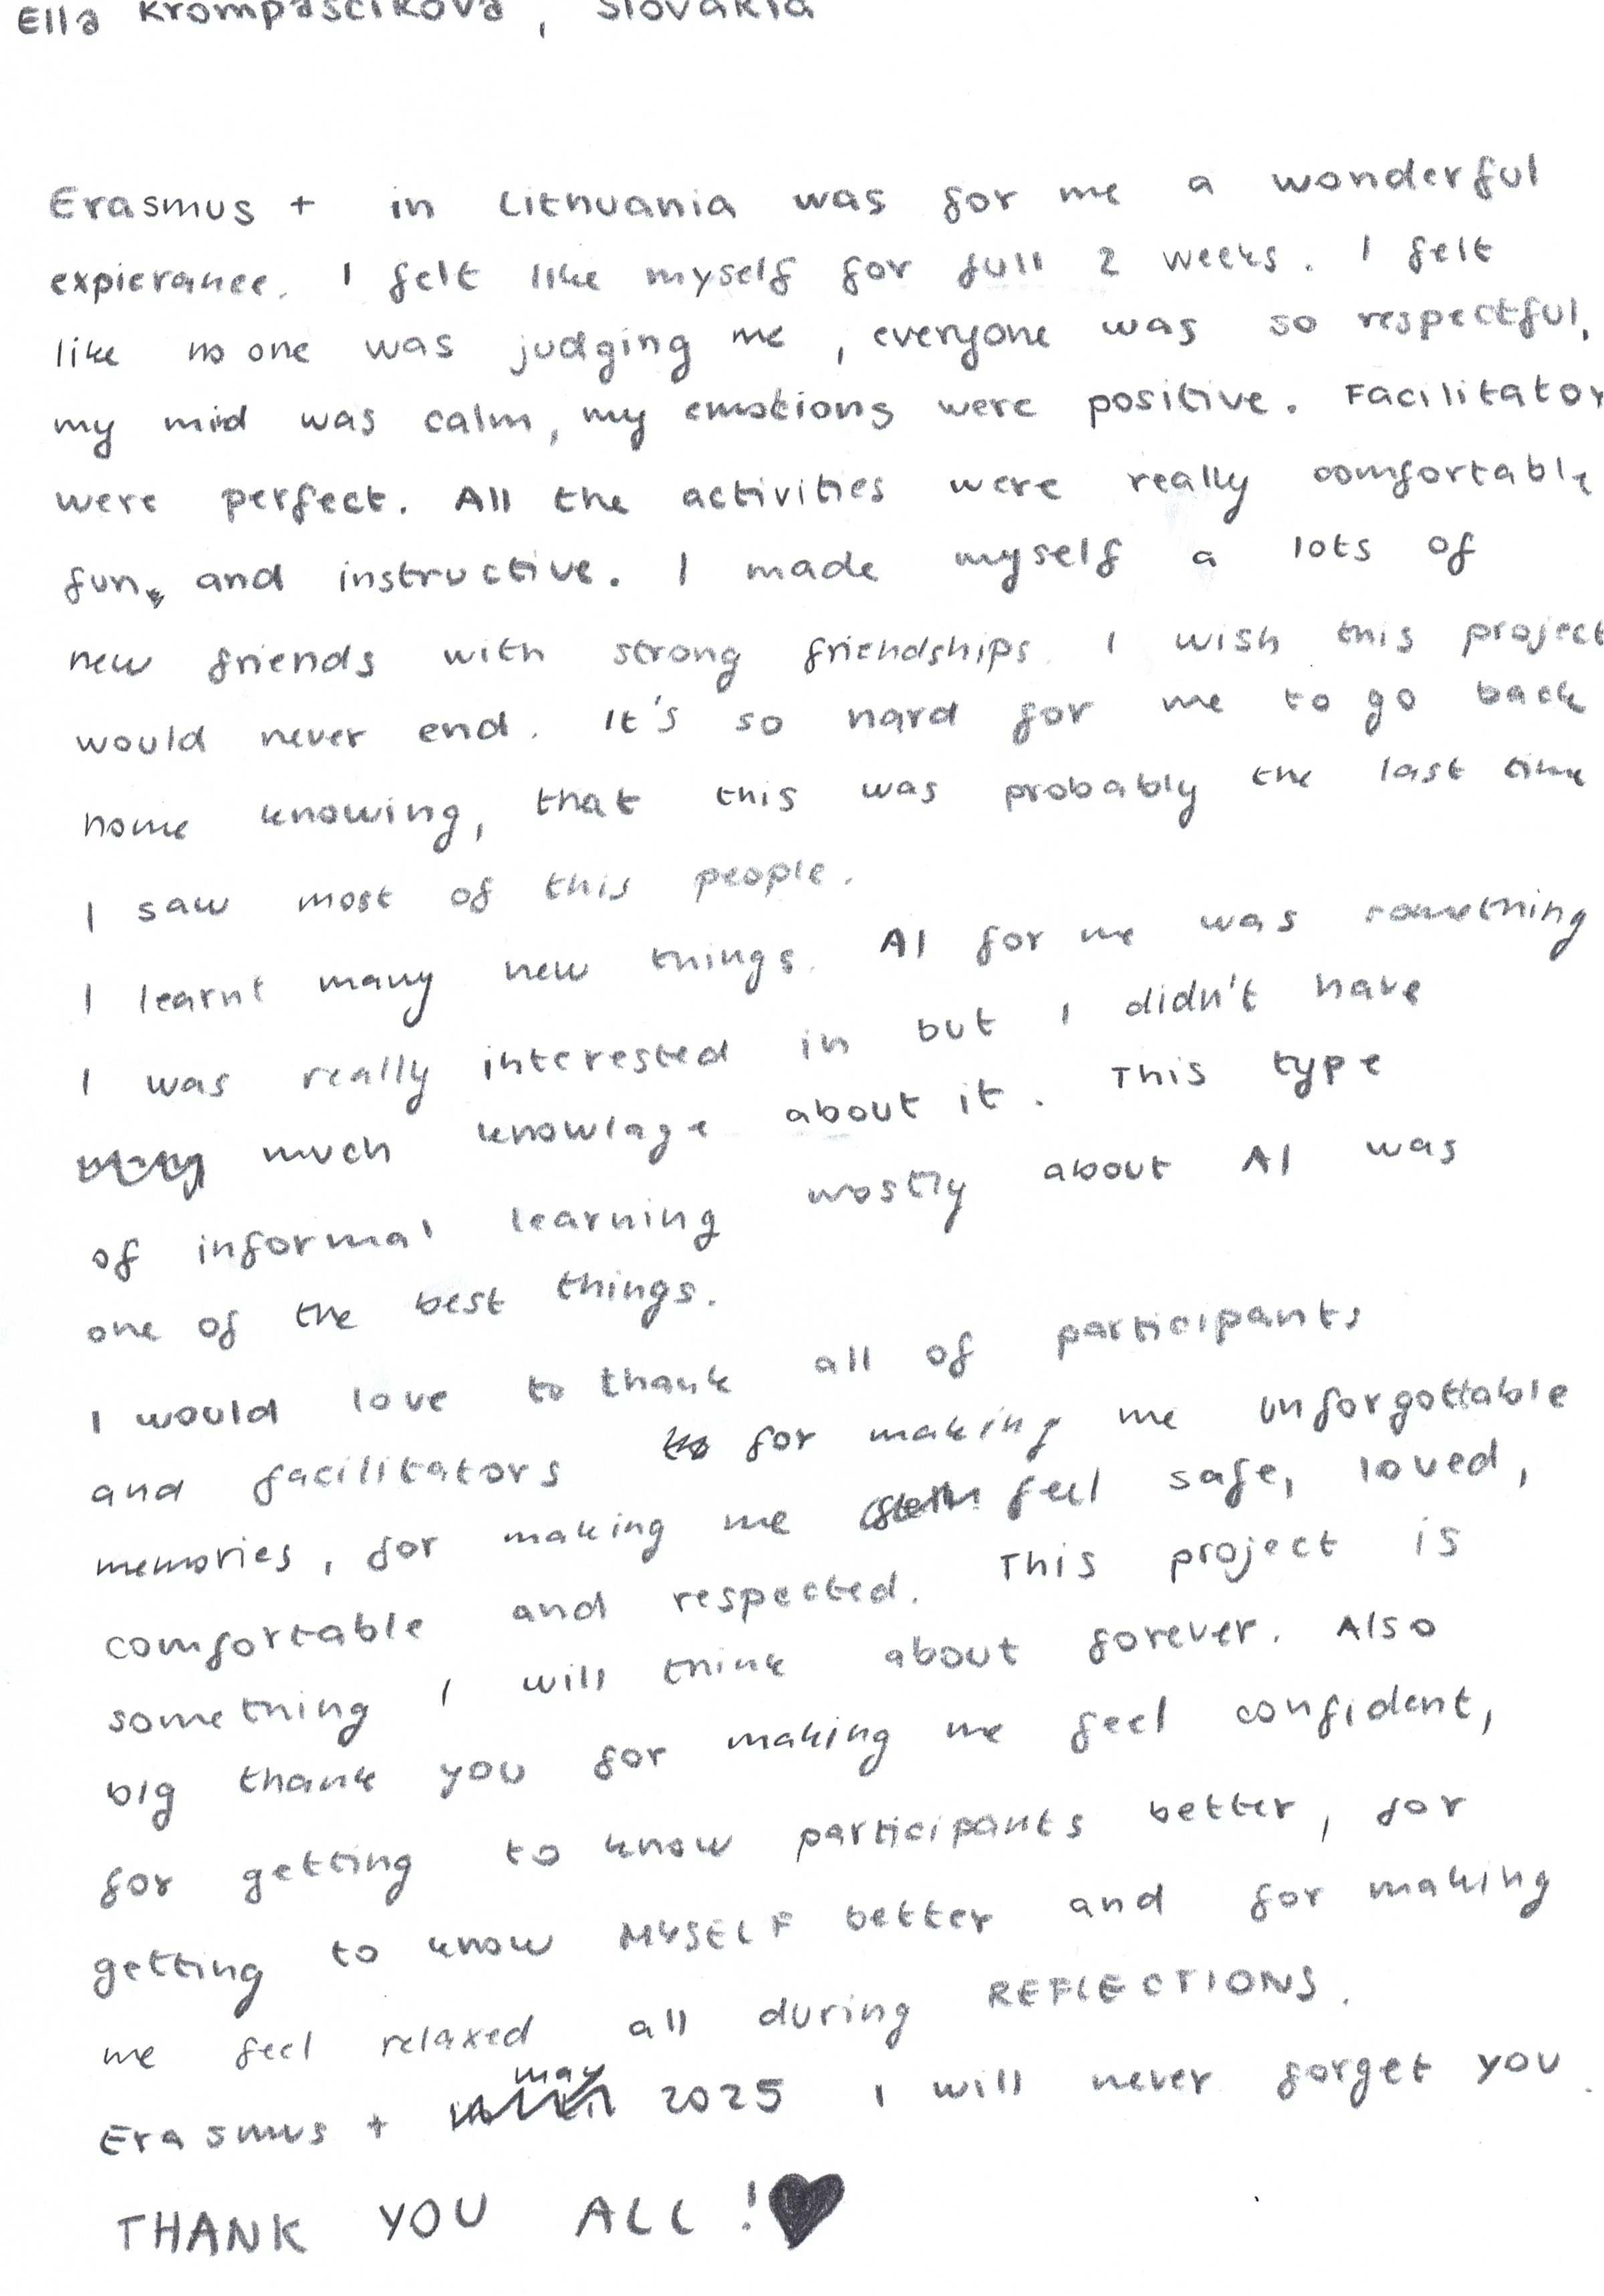 Ella Krompaščíková, Slovakia
Erasmus + in Lithuania was for me a wonderful
expierance. I felt like myself for full 2 weeks. I felt
like no one was judging me, everyone was so respectful,
my mid was calm, my emotions were positive. Facilitator
were perfect. All the activities were really comfortable
fun, and instructive. I made myself a lots of
new friends with strong friendships. I wish this project
would never end. It's so hard for me to go back
home knowing, that this was probably the last time
I saw most of this people.
I learnt many new things. AI for me was something
I was really interested in but I didn't have
much knowlage about it. This type
of informal learning mostly about AI was
one of the best things.
I would love to thank all of participants
and facilitators for making me unforgottable
memories, for making me feel safe, loved,
comfortable and respected. This project is
something I will think about forever. Also
big thank you for making me feel confident,
for getting to know participants better, for
getting to know MYSELF better and for making
me feel relaxed all during REFLECTIONS.
Erasmus + may 2025 I will never forget you.
THANK YOU ALL !♥